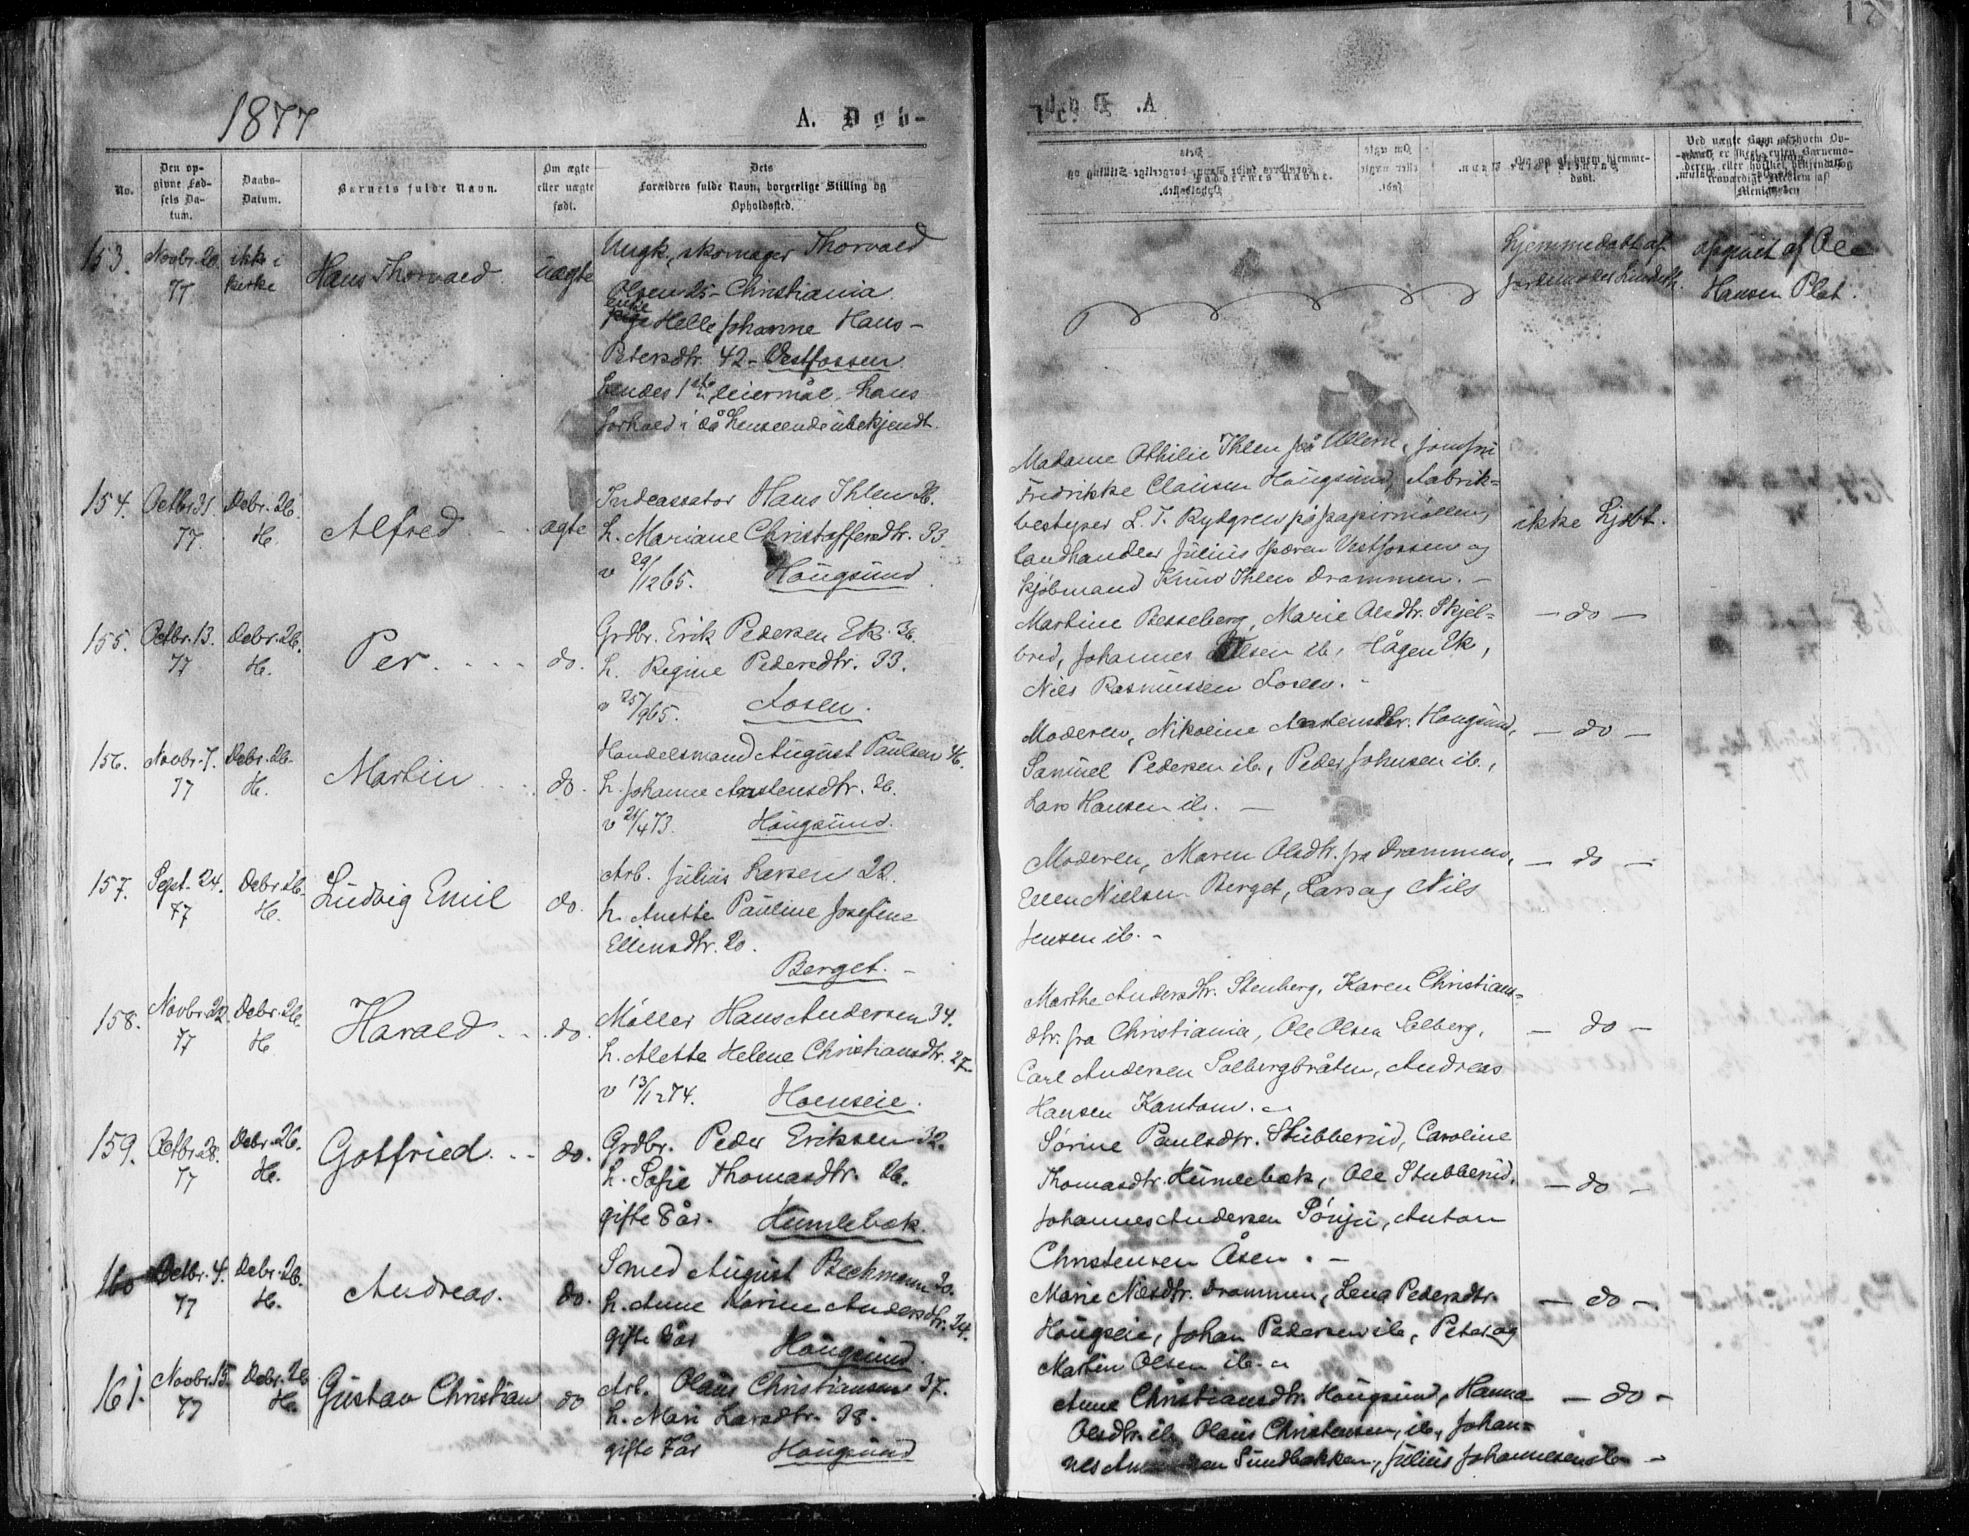 1877
A. Døb-
No.
Den op-
givne Fød-
sels Da-
tum.
Daabs-
Datum.
Barnets fulde Navn.
Om ægte
eller uægte
født.
Dets
Forældres fulde Navn, borgerlige Stilling og
Opholdssted.
Faddernes Navne.
Om og af hvem hjemme-
døbt.
153. Novbr. 20. 77 ikke i kirke Hans Thorvald uægte
Ungk, skomager Thorvald
Olsen 25 - Christiania
Enke
Helle Johanne Hans-
Petersdtr. 42 - Vestfossen.
hendes 1ste leiermål, hans
forhold i så henseende ubekjendt.
hjemmedøbt af
afgivet af Ole
Hansen Plat.
154. Octbr. 31. 77. Debr. 26. H. Alfred - ægte
Indcassator Hans Ihlen 36.
h. Mariane Christoffersdtr. 33
v 29/12 65. Hougsund.
Madame Othilie Ihlen på Ullern, jomfru
Fredrikke Clausen Hougsund, Fabrik-
bestyrer L. T. Rydgren på papirmøllen,
landhandler Julius Vestfossen og
kjøbmand Knud Ihlen Drammen. -
ikke hjdbt.
155. Octbr. 13. 77 Debr. 26. H. Per. do.
Grdbr. Erik Pedersen Ek. 36.
h. Regine Pedersdtr. 33.
v 25/9 65. Losen.
Martine Besseberg, Marie Olsdtr. Skjel-
bred, Johannes Olsen ib., Hågen Ek,
Nils Rasmussen Losen. -
- do -
156. Novbr. 7. 77 Debr. 26. H. Martin do.
Handelsmand August Paulsen 46.
h. Johanne Arstensdtr. 36.
v 21/4 73. Hougsund.
Moderen, Nikoline Arstensdtr. Hougsund,
Samuel Pedersen ib., Peder Johnsen ib.,
Lars Hansen ib. -
- do -
157. Sept. 24. 77 Debr. 26. H. Ludvig Emil do.
Arb. Julius Larsen 22.
h. Anette Pauline Josefine
Ellensdtr. 20.
Berget. -
Moderen, Maren Olsdtr. fra Drammen,
Ellen Nielsen Berget, Lars og Nils
Jensen ib. -
- do -
158. Novbr. 22. 77 Debr. 26. H Harald do.
Møller Hans Andersen 34.
h. Alette Helene Christiansdtr. 27.
v 13/12 74. Hoenseie.
Marthe Andersdtr. Stenberg, Karen Christians-
dtr. fra Christiania, Ole Olsen Solberg,
Carl Andersen Solbergbråten, Andreas
Hansen Kantom. -
- do -
159. Octbr. 28. 77 Debr. 26. H. Gotfried. do.
Grdbr. Peder Eriksen 32.
h. Sofie Thomasdtr. 26.
gifte 8 år. Humlebæk.
Sørine Paulsdtr. Stubberud, Caroline
Thomasdtr. Humlebæk, Ole Stubberud,
Johannes Andersen Sønju, Anton
Christensen Åsen. -
- do -
160 Octbr. 4. 77 Debr. 26. H. Andreas. do.
Smed August Beckmann 30.
h. Anne Karine Andersdtr. 24.
gifte 8 år Hougsund.
Marie Nilsdtr. Drammen, Lena Pedersdtr.
Hougseie, Johan Pedersen ib., Peter og
Martin Olsen ib. -
- do -
161. Novbr. 15. 77 Debr. 26 H. Gustav Christian do
Arb. Olaus Christiansen 37.
h. Mari Larsdtr. 38.
gifte 7 år Hougsund
Anne Christiansdtr. Hougsund, Hanna
Olsdtr. ib. Olaus Christensen, ib., Johan-
nes Sundbakken, Julius Johannesen ib -
- do -